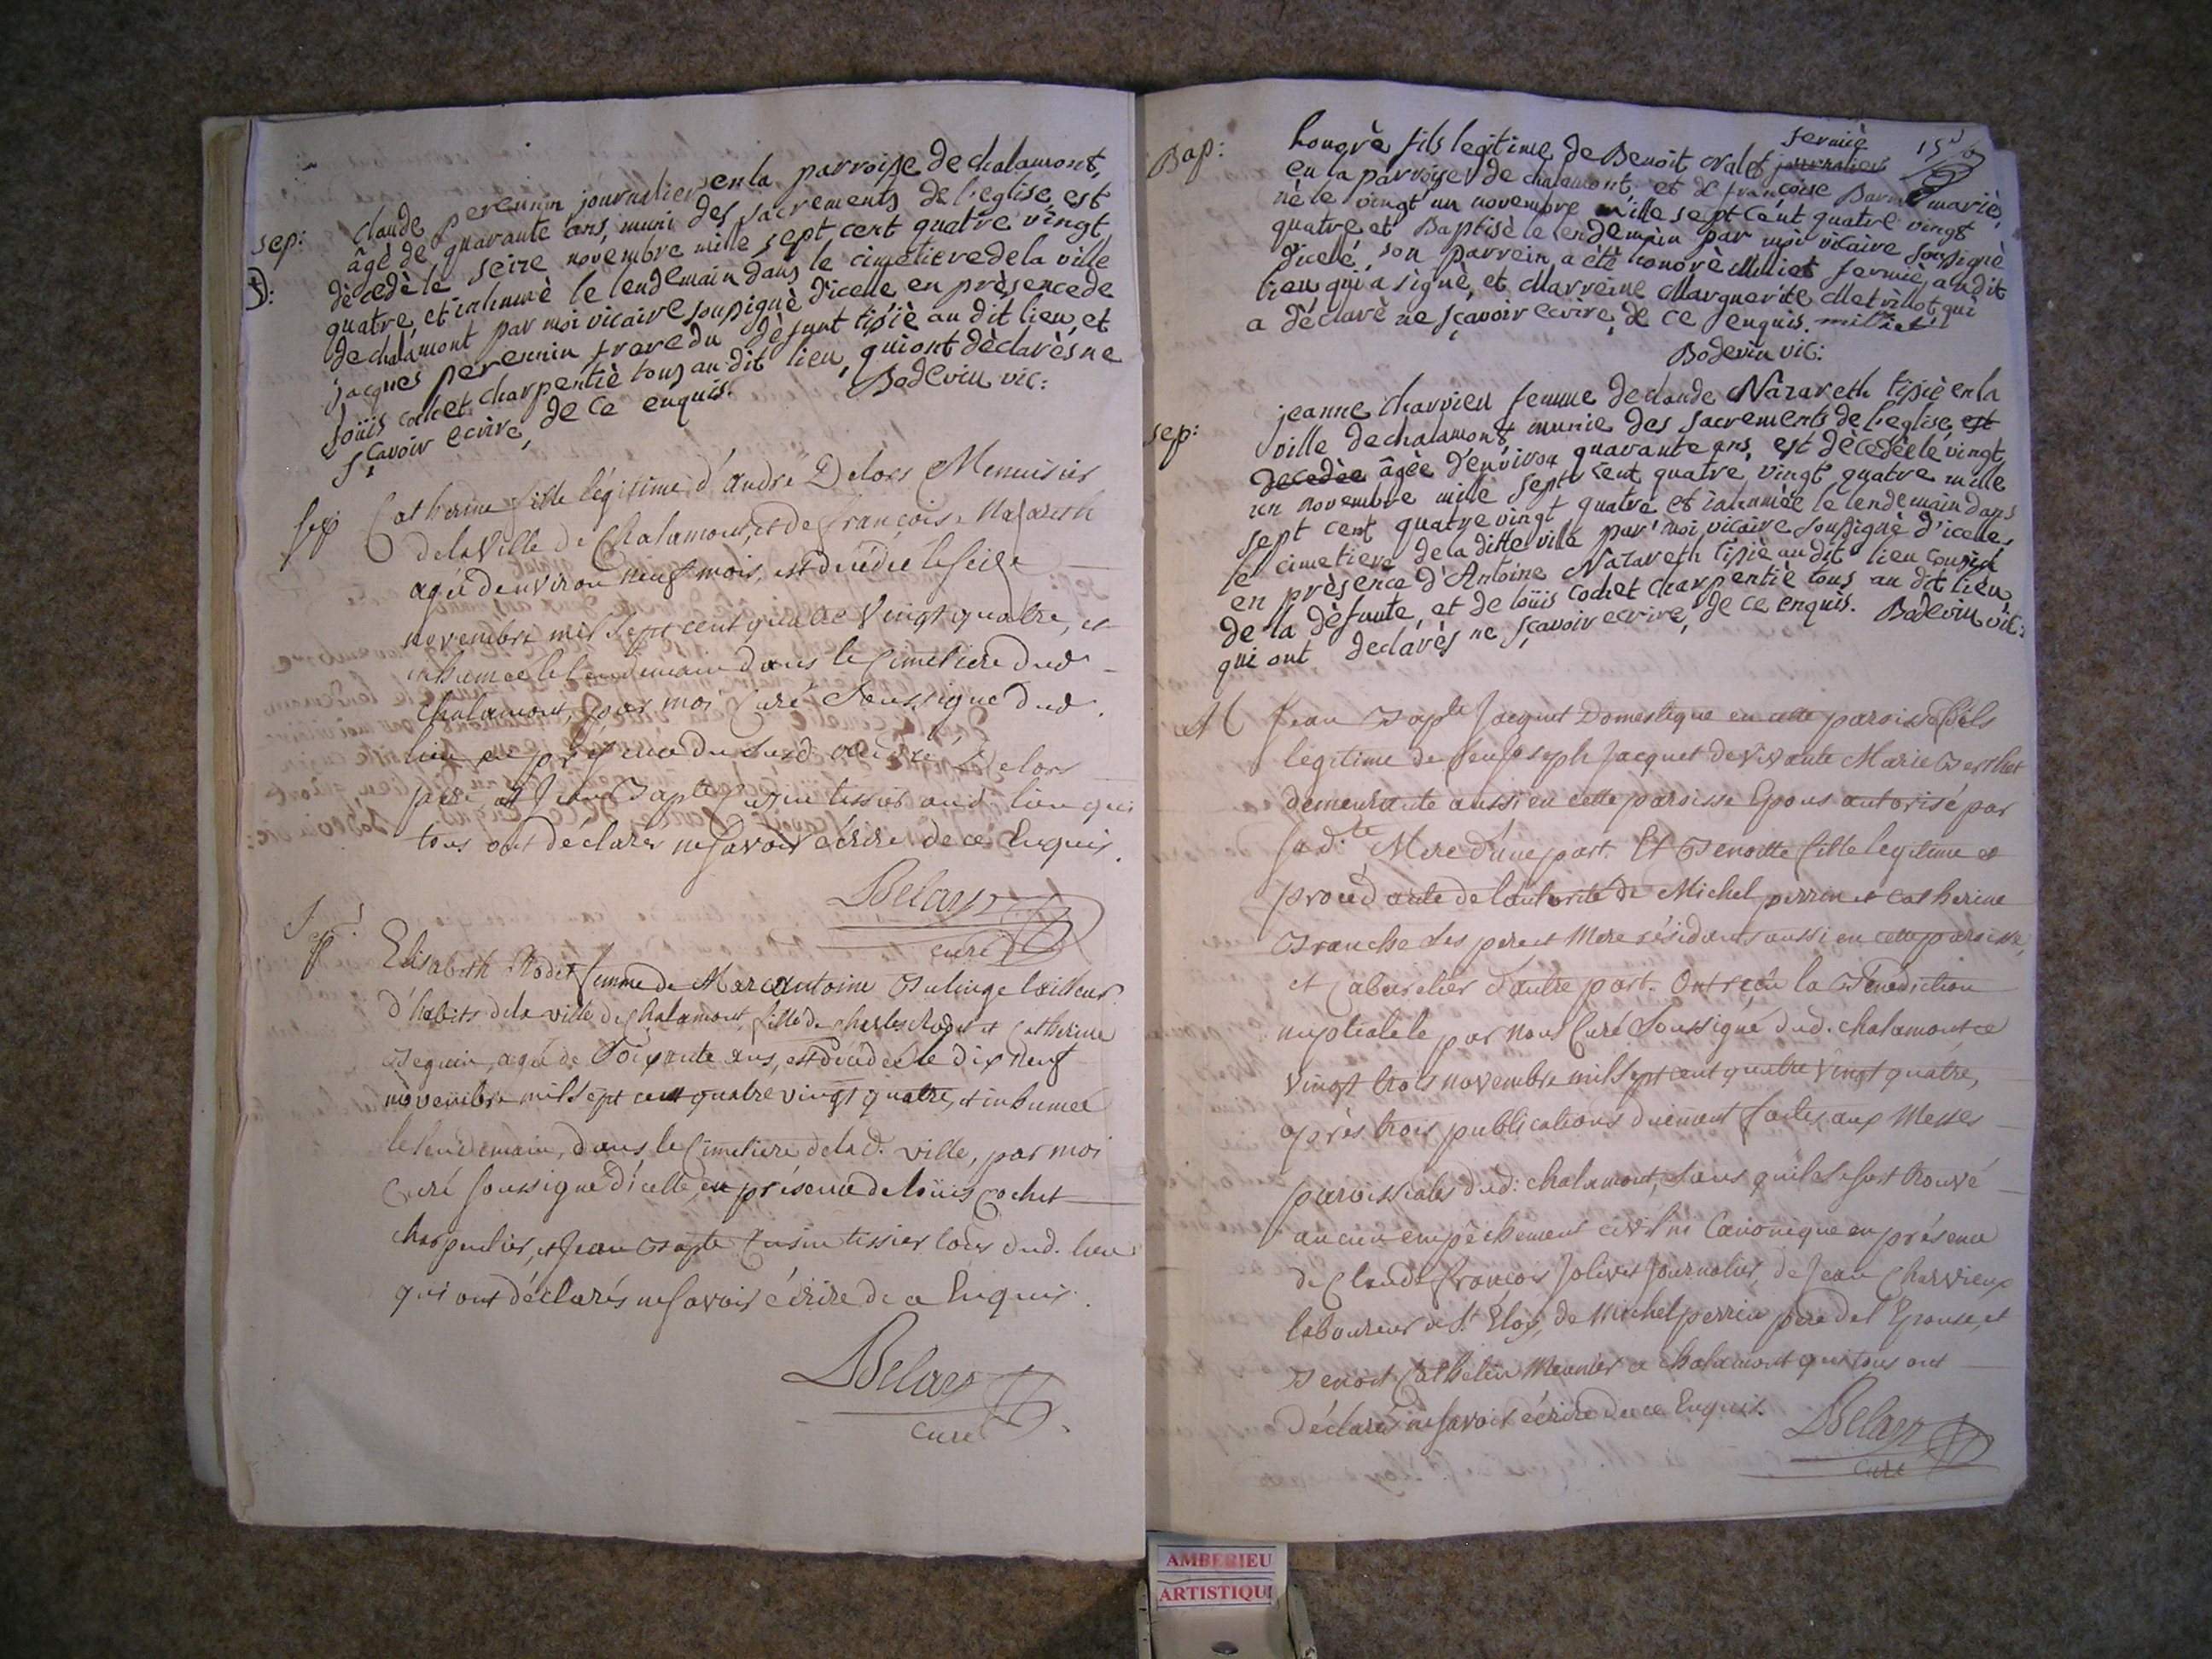 sep:
claude perennin journalier en la parroisse de chalamont,
âgè de quarante ans, muni des sacrements de l'eglise, est
dècedè le seize novembre mille sept cent quatre vingt
quatre, et inhumè le lendemain dans le cimetiere de la ville
de chalamont par moi vicaire soussignè d'icelle, en prèsence de
jacques perennin frere du dèfunt tisiè au dit lieu, et
loüis cochet charpentiè tous au dit lieu, qui ont dèclarès ne
sçavoir ecrire, de ce enquis. Bodevin vic:
sep
Catherine fille légitime d'andré Delors Menuisier
de la Ville de Chalamont, et de françoise Nazareth
agée d'environ neuf mois, est décédée le seize
novembre mil sept cent quatre vingt quatre, et
inhumée le lendemain dans le Cimetiere dud.
Chalamont, par moi Curé soussigné dud.
lieu en présence du susd. andré Delors
père, et Jean Bapte Cusin tissier aud. lieu qui
tous ont déclarés ne savoir écrire de ce Enquis.
Belay
curé
Sep.
Elisabeth Rodet femme de Marc antoine Bulinge tailleur
d'habits de la ville de Chalamont, fille de charles Rodet et Catherine
Seguin, agée de Soixante ans, est décédée le dix neuf
novembre mil sept cent quatre vingt quatre, et inhumée
le lendemain, dans le Cimetiere de lad. ville, par moi
Curé soussigné d'icelle en présence de loüis Cochet
charpentier, et Jean Bapte Cusin tissier tous dud. lieu
qui ont déclarés ne savoir écrire de ce Enquis.
Belay
curé
Bap:
fermiè
honorè fils legitime de Benoit cralet journalier
en la parroisse de chalamont, et de françoise mariès,
nè le vingt un novembre mille sept cent quatre vingt
quatre et Baptisè le lendemain par moi vicaire soussignè
d'icelle, son parrein a ètè honorè Milliet fermiè au dit
lieu qui a signè, et Marreine Marguerite qui
a dèclarè ne sçavoir ecrire, de ce enquis. milliet
Bodevin vic:
sep:
jeanne charvieu femme de claude Nazareth tisiè en la
ville de chalamont, munie des sacrements de l'eglise, est
decedèe âgèe d'environ quarante ans, est dècedèe le vingt
un novembre mille sept cent quatre vingt quatre mille
sept cent quatre vingt quatre et inhumèe le lendemain dans
le cimetiere de la ditte ville par moi vicaire soussignè d'icelle,
en prèsence d'Antoine Nazareth tisiè au dit lieu cousin
de la dèfunte, et de loüis cochet charpentiè tous au dit lieu,
qui ont declarès ne sçavoir ecrire, de ce enquis. Bodevin vic:
M
Jean Bapte Jacquet Domestique en cette paroisse, fils
légitime de feu Joseph Jacquet de vivante Marie Berthet
demeurante aussi en cette paroisse Epous autorisé par
sad.te Mere d'une part. Et Benoitte fille legitime et
procédante de l'autorité de Michel perrin et Catherine
Branche Ses pere et Mere résidants aussi en cette paroisse,
et Cabaretier d'autre part. Ont reçu la Bénédiction
nuptialele par Nous Curé soussigné dud. chalamont ce
vingt trois novembre mil sept cent quatre vingt quatre,
après trois publications duement faites aux Messes
paroissiales dud: chalamont, sans qu'il se soit trouvé
aucun empêchement civil ni Canonique en présence
de Claude françois Jolivet Journalier, de Jean Charvieux
laboureur de St. Eloy, de Michel perrin pere de l'Epouse, et
Benoit Cathelin Meunier a chalamont qui tous ont
déclarés ne savoir écrire de ce Enquis. Belay
curé
AMBERIEU
ARTISTIQU